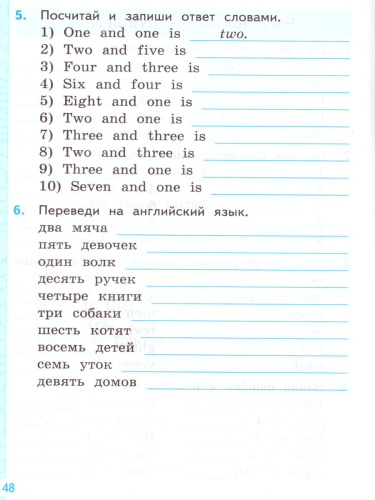 5. Посчитай и запиши ответ словами.
1) One and one is two.
2) Two and five is
3) Four and three is
4) Six and four is
5) Eight and one is
6) Two and one is
7) Three and three is
8) Two and three is
9) Three and one is
10) Seven and one is
6. Переведи на английский язык.
два мяча
пять девочек
один волк
десять ручек
четыре книги
три собаки
шесть котят
восемь детей
семь уток
девять домов
48